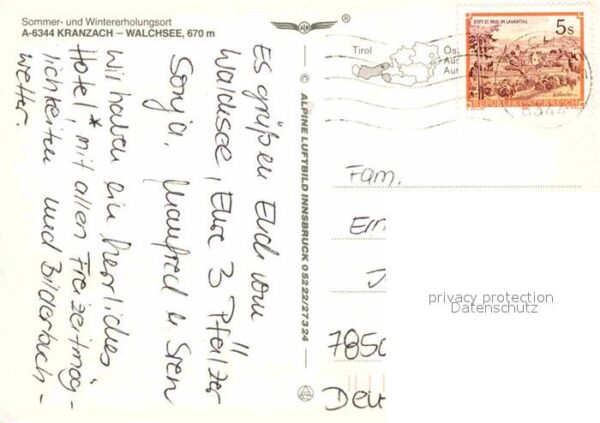 Sommer- und Wintererholungsort
A-6344 KRANZACH — WALCHSEE, 670 m
Es grüßen Euch vom
Walchsee, Eure 3 Pfälzer
Sonja, Manfred u. Sven
Wir haben ein herrliches
Hotel,* mit allen Freizeitmög-
lichkeiten und Bilderbuch-
wetter.
© ALPINE LUFTBILD INNSBRUCK 05222/27324
Tirol
STIFT ST. PAUL IM LAVANTTAL
5s
REPUBLIK ÖSTERREICH
Fam.
785
privacy protection
Datenschutz